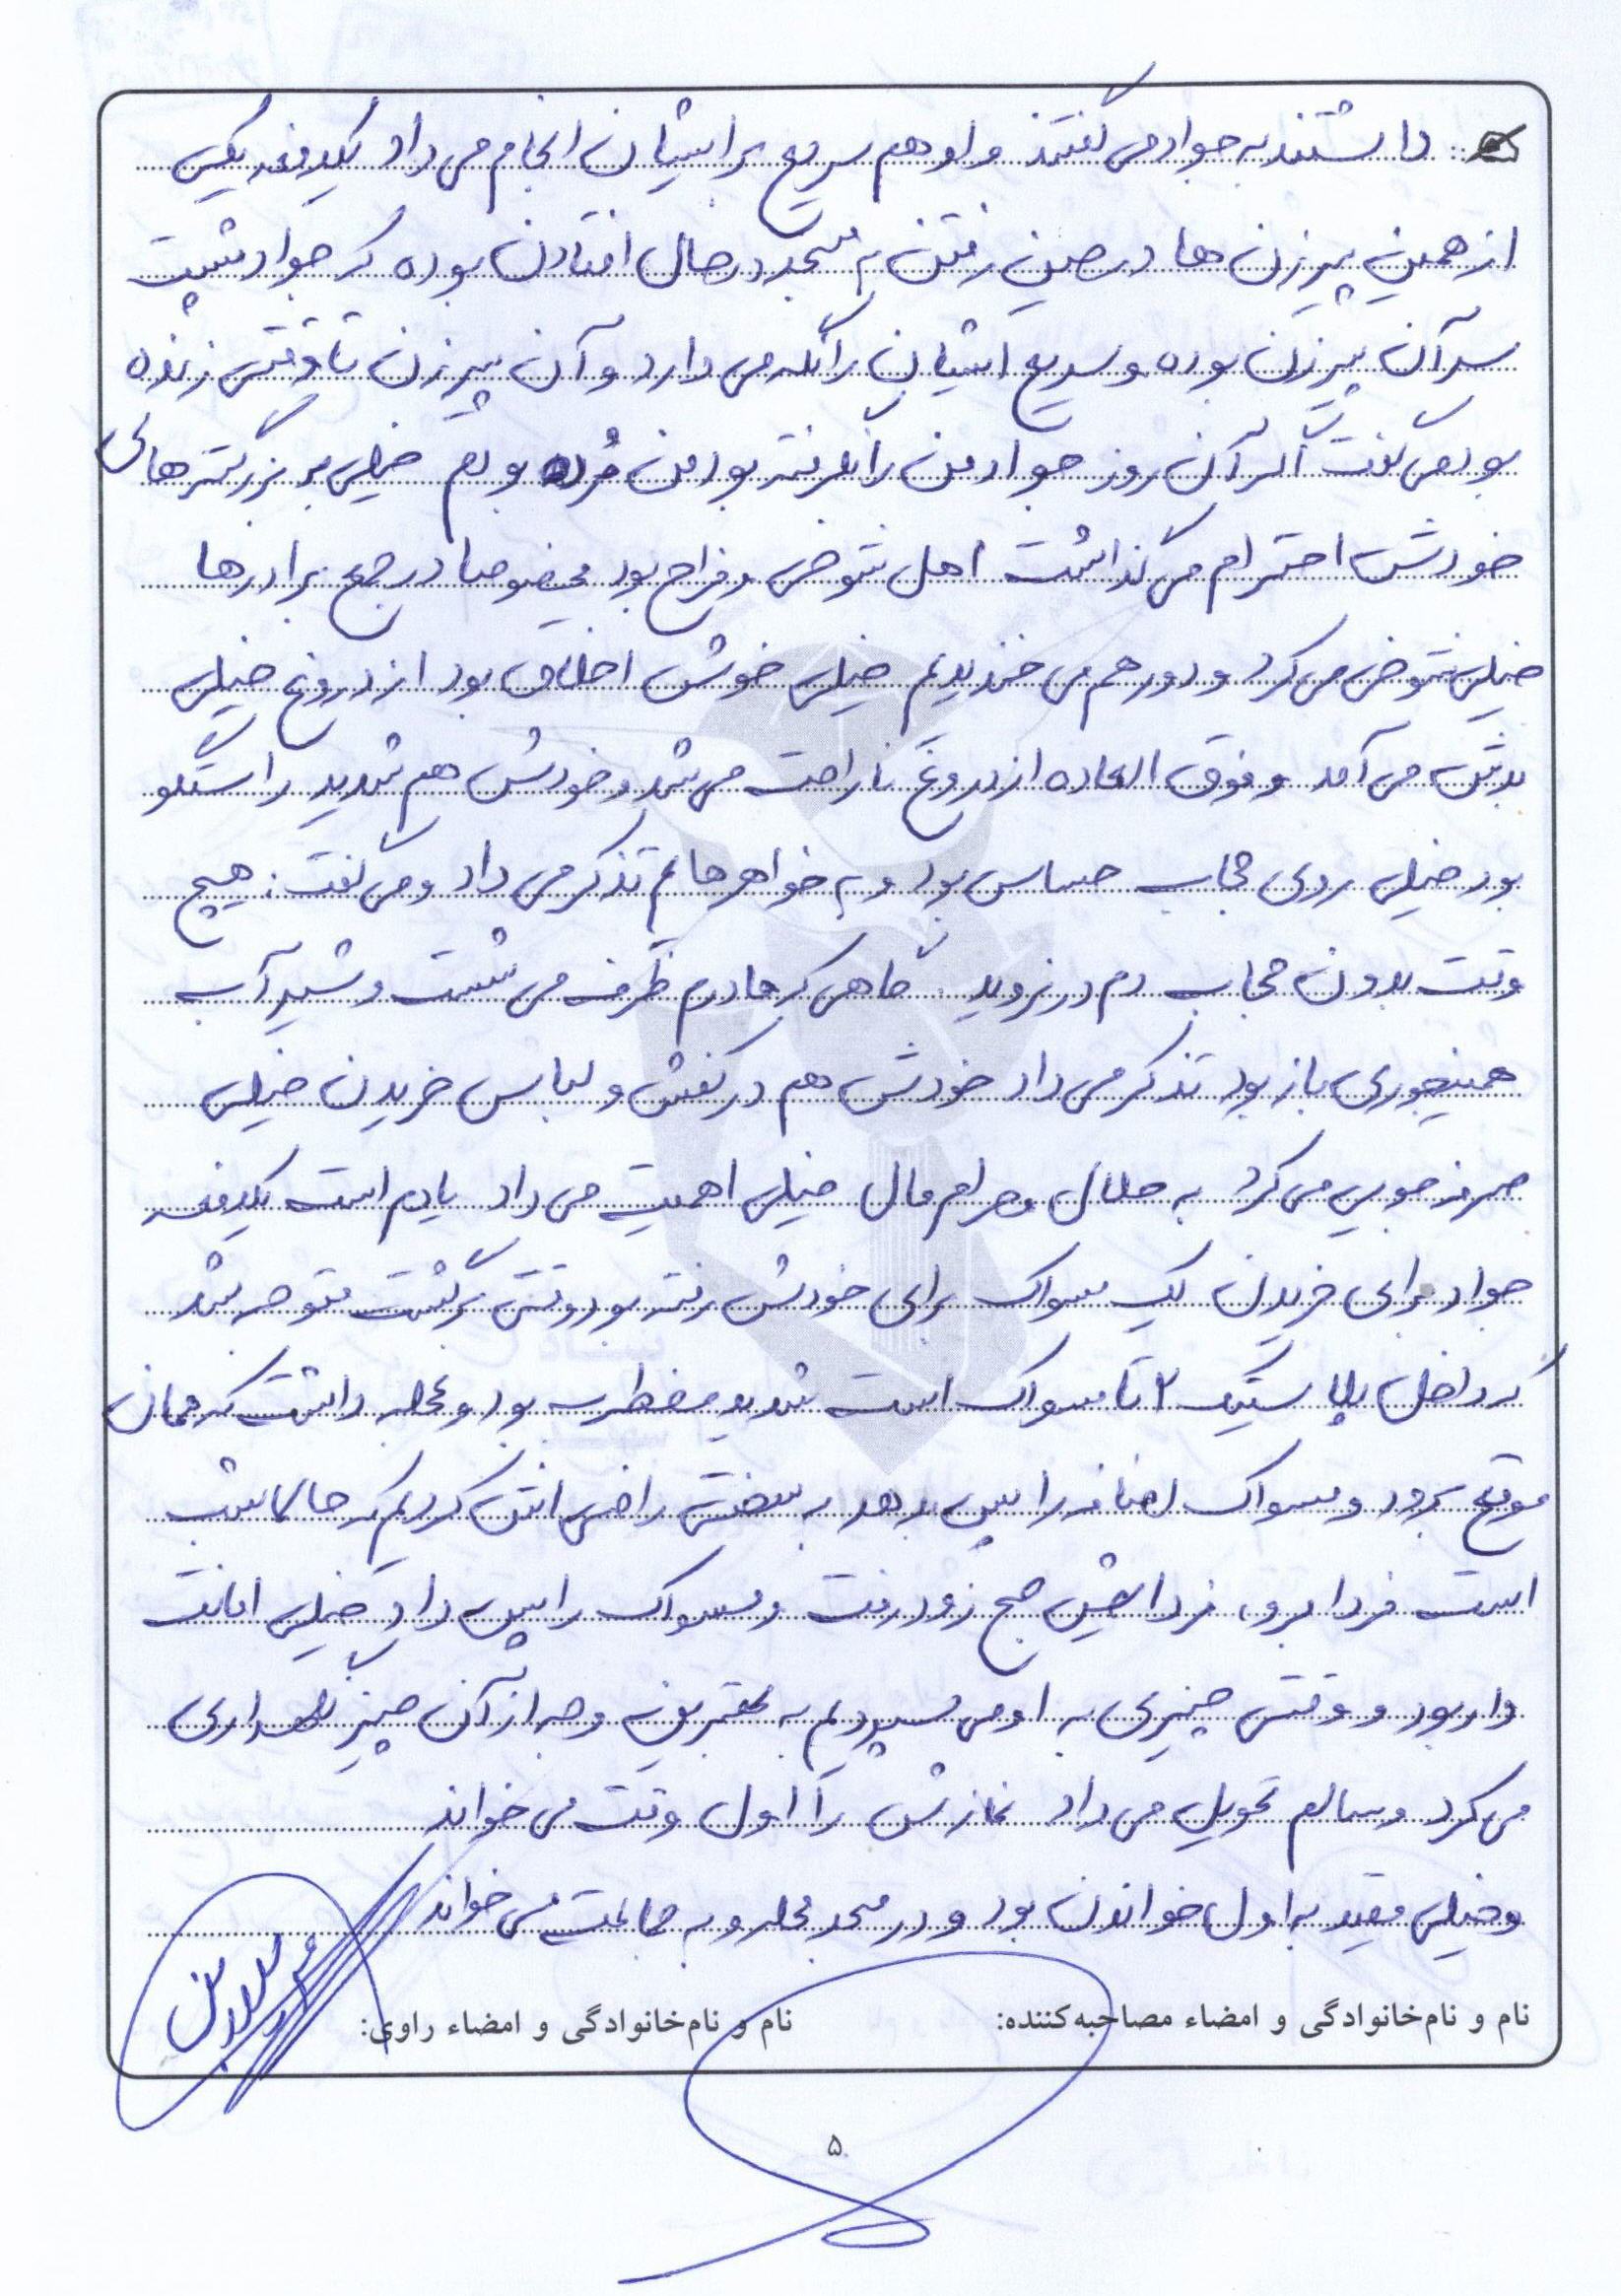 داشتند به جواد می گفتند و او هم سریع برایشان انجام می داد یکدفعه یکی
از همین پیرزن ها در حین رفتن به مسجد در حال افتادن بوده که جواد پشت
سر آن پیرزن بوده و سریع ایشان را نگه می دارد و آن پیرزن تا وقتی زنده
بود می گفت اگر آن روز جواد من را نگرفته بود من مُرده بودم خیلی به بزرگترهای
خودش احترام می گذاشت اهل شوخی و مزاح بود مخصوصا در جمع برادرها
خیلی شوخی می کرد و دور هم می خندیدیم خیلی خوش اخلاق بود از دروغ خیلی
بدش می آمد و فوق العاده از دروغ ناراحت می شد و خودش هم شدید راستگو
بود خیلی روی حجاب حساس بود و به خواهرها هم تذکر می داد و می گفت: هیچ
وقت بدون حجاب دم در نروید گاهی که مادرم ظرف می شست و شیر آب
همینجوری باز بود تذکر می داد خودش هم در کفش و لباس خریدن خیلی
صرفه جویی می کرد به حلال و حرام مال خیلی اهمیت می داد یادم است یکدفعه
جواد برای خریدن یک مسواک برای خودش رفته بود وقتی برگشت متوجه شد
که داخل پلاستیک ۲ تا مسواک است شدید مضطرب بود و عجله داشت که همان
موقع برود و مسواک اضافه را پس بدهد به سختی راضی اش کردیم که حالا شب
است فردا برو، فردایش صبح زود رفت و مسواک را پس داد خیلی امانت
دار بود و وقتی چیزی به او می سپردیم به بهترین وجه از آن چیز نگهداری
می کرد و سالم تحویل می داد نمازش را اول وقت می خواند
و خیلی مقید به اول خواندن بود و در مسجد محله و به جماعت می خواند
نام و نام‌خانوادگی و امضاء مصاحبه‌کننده:
نام و نام‌خانوادگی و امضاء راوی:
۵